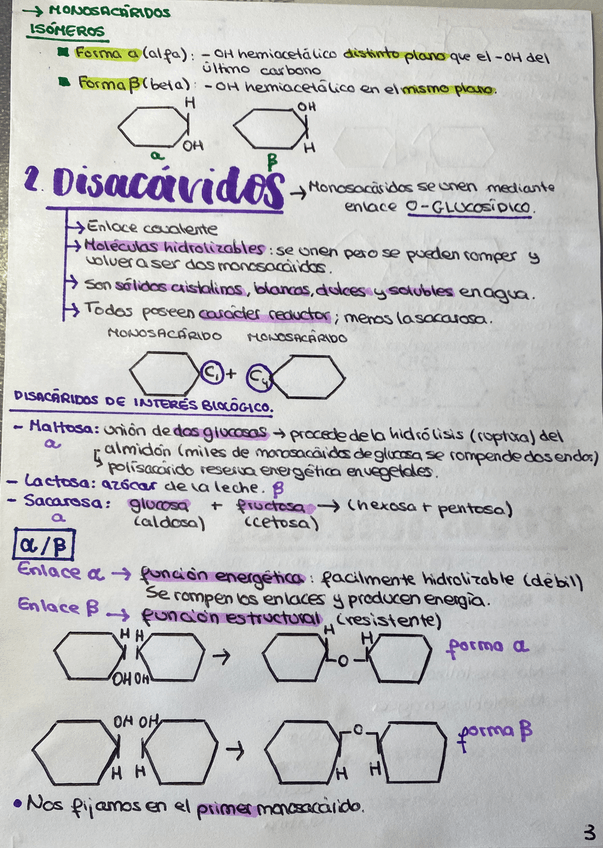 → MONOSACÁRIDOS
ISÓMEROS
▪ Forma α (alfa): -OH hemiacetálico distinto plano que el -OH del
último carbono
▪ Forma β (beta): -OH hemiacetálico en el mismo plano.
H OH
OH H
α β
2. Disacáridos → Monosacáridos se unen mediante
enlace O-GLUCOSÍDICO.
→ Enlace covalente
→ Moléculas hidrolizables: se unen pero se pueden romper y
volver a ser dos monosacáridos.
→ Son sólidos cristalinos, blancos, dulces y solubles en agua.
→ Todos poseen carácter reductor; menos la sacarosa.
MONOSACÁRIDO MONOSACÁRIDO
C1 + C4
DISACÁRIDOS DE INTERÉS BIOLÓGICO.
- Maltosa: unión de dos glucosas → procede de la hidrólisis (ruptura) del
α almidón (miles de monosacáridos de glucosa se rompen de dos en dos)
↳ polisacárido reserva energética en vegetales.
- Lactosa: azúcar de la leche. β
- Sacarosa: glucosa + fructosa → (hexosa + pentosa)
α (aldosa) (cetosa)
α/β
Enlace α → función energética: facilmente hidrolizable (débil)
Se rompen los enlaces y producen energía.
Enlace β → función estructural (resistente)
H H → H H forma α
OH OH O
OH OH → O forma β
H H H H
• Nos fijamos en el primer monosacárido.
3